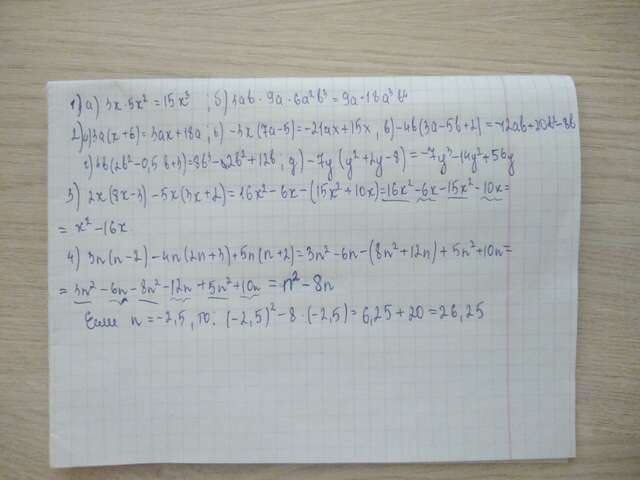 1) а) 3x·5x² = 15x³ ; б) 3ab · 9a · 6a²b³ = 9a · 18a³b⁴
2) а) 3a(x+6) = 3ax+18a ; б) -3x(7a-5) = -21ax+15x ; в) -4b(3a-5b+2) = -12ab+20b²-8b
г) 4b(2b²-0,5b+3) = 8b³-2b²+12b ; д) -7y(y²+2y-8) = -7y³-14y²+56y
3) 2x(8x-3) - 5x(3x+2) = 16x²-6x-(15x²+10x) = 16x²-6x-15x²-10x =
= x²-16x
4) 3n(n-2) - 4n(2n+3) + 5n(n+2) = 3n²-6n-(8n²+12n)+5n²+10n =
= 3n²-6n-8n²-12n+5n²+10n = n²-8n
Если n = -2,5, то: (-2,5)²-8·(-2,5) = 6,25+20 = 26,25